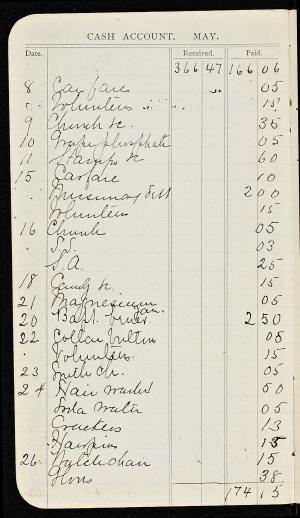 CASH ACCOUNT. MAY.
Date. Received. Paid.
366 47 166 06
8 Car fare 05
" Volunteers " " 15
9 Church &c. 35
10 Grape phosphate 05
11 Stamps &c 60
15 Carfare 10
2 00
Volunteers 15
16 Church 05
" S.S. 03
S.A. 25
18 Candy &c. 15
21 Magnesium 05
20 Bapt. 2 50
22 Collar buttons 05
" Volunteers. 15
23 Ch. 05
24 Hair 50
Soda Water 05
Crackers 13
Hairpins 15
26 Watch chain 15
38
174 15